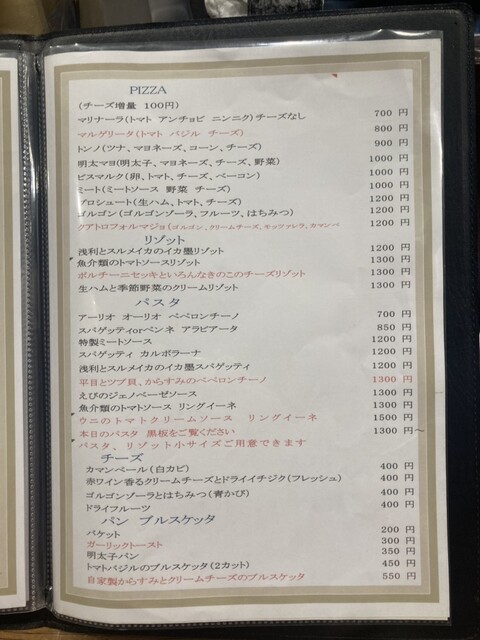 PIZZA
(チーズ増量 100円)
マリナーラ(トマト アンチョビ ニンニク)チーズなし 700 円
マルゲリータ(トマト バジル チーズ) 800 円
トンノ(ツナ、マヨネーズ、コーン、チーズ) 900 円
明太マヨ(明太子、マヨネーズ、チーズ、野菜) 1000 円
ビスマルク(卵、トマト、チーズ、ベーコン) 1000 円
ミート(ミートソース 野菜 チーズ) 1000 円
プロシュート(生ハム、トマト、チーズ) 1200 円
ゴルゴン(ゴルゴンゾーラ、フルーツ、はちみつ) 1200 円
クアトロフォルマジョ(ゴルゴン、クリームチーズ、モッツァレラ、カマンベ 1200 円
リゾット
浅利とスルメイカのイカ墨リゾット 1200 円
魚介類のトマトソースリゾット 1300 円
ポルチーニセッキといろんなきのこのチーズリゾット 1300 円
生ハムと季節野菜のクリームリゾット 1300 円
パスタ
アーリオ オーリオ ペペロンチーノ 700 円
スパゲッティorペンネ アラビアータ 850 円
特製ミートソース 1200 円
スパゲッティ カルボラーナ 1200 円
浅利とスルメイカのイカ墨スパゲッティ 1200 円
平目とツブ貝、からすみのペペロンチーノ 1300 円
えびのジェノベーゼソース 1300 円
魚介類のトマトソース リングイーネ 1300 円
ウニのトマトクリームソース リングイーネ 1500 円
本日のパスタ 黒板をご覧ください 1300 円～
パスタ、リゾット小サイズご用意できます
チーズ
カマンベール(白カビ) 400 円
赤ワイン香るクリームチーズとドライイチジク(フレッシュ) 400 円
ゴルゴンゾーラとはちみつ(青かび) 400 円
ドライフルーツ 400 円
パン ブルスケッタ
バケット 200 円
ガーリックトースト 300 円
明太子パン 350 円
トマトバジルのブルスケッタ(2カット) 450 円
自家製からすみとクリームチーズのブルスケッタ 550 円